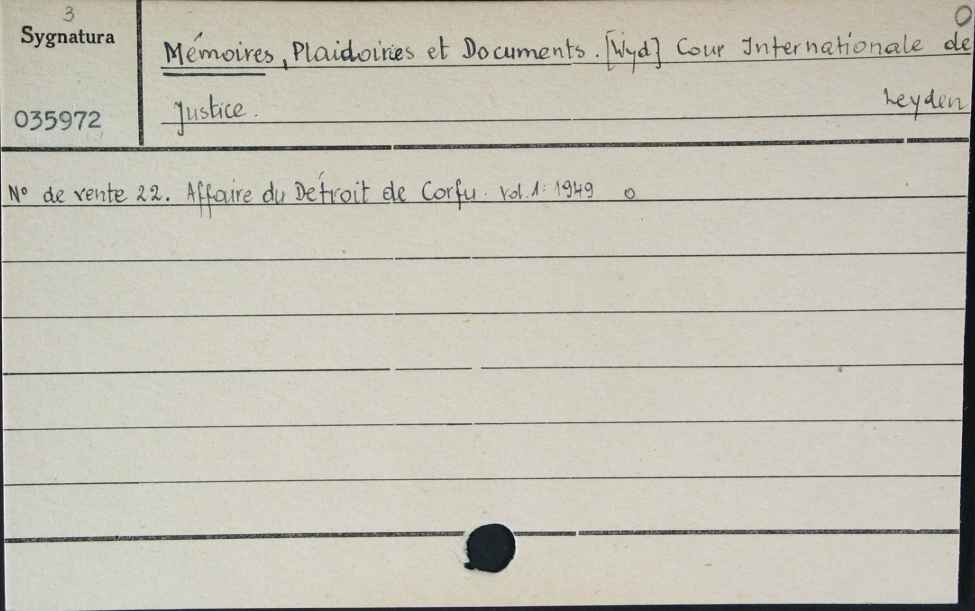 3
O
Sygnatura
Mémoires, Plaidoiries et Documents. [Wyd] Cour Internationale de
035972
Justice. Leyden
Nº de vente 22. Affaire du Détroit de Corfu. Vol. 1: 1949 o